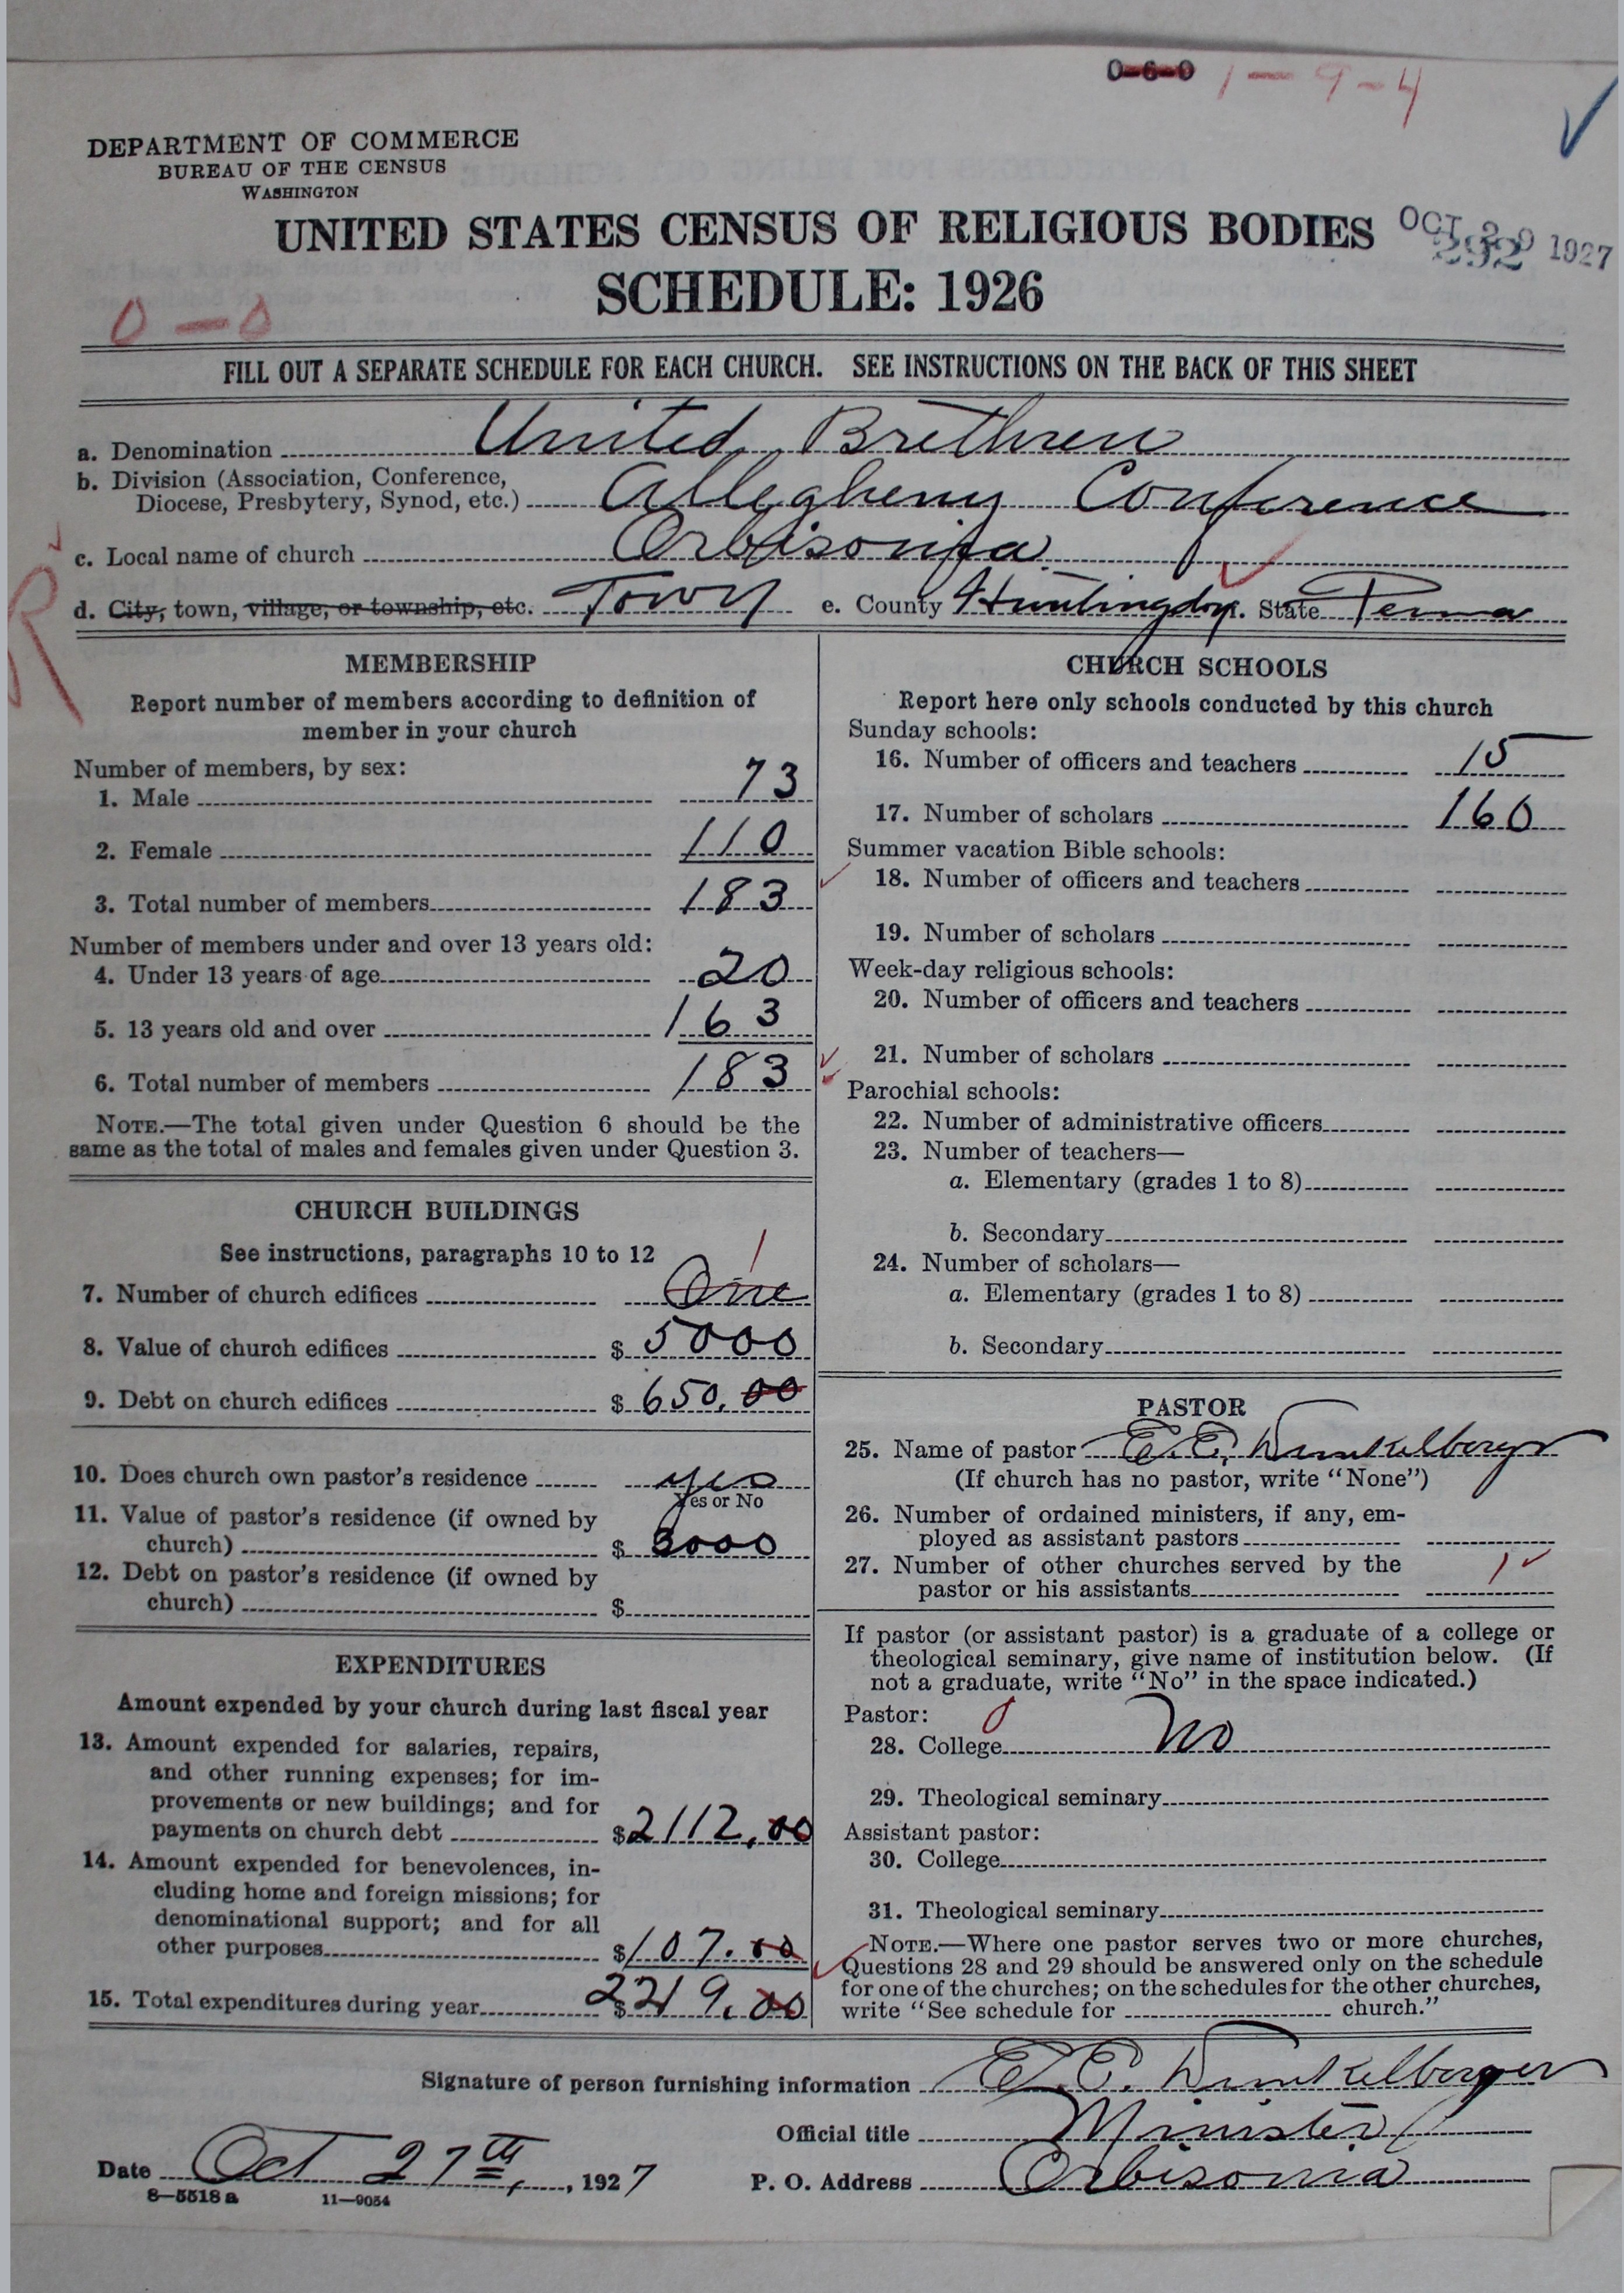 0-6-0 1-9-4
DEPARTMENT OF COMMERCE
BUREAU OF THE CENSUS
WASHINGTON
UNITED STATES CENSUS OF RELIGIOUS BODIES
OCT 1927
292
SCHEDULE: 1926
0-0
FILL OUT A SEPARATE SCHEDULE FOR EACH CHURCH. SEE INSTRUCTIONS ON THE BACK OF THIS SHEET
a. Denomination United Brethren
b. Division (Association, Conference,
Diocese, Presbytery, Synod, etc.) Allegheny Conference
c. Local name of church Orbisonia
d. City, town, village, or township, etc. Town e. County Huntingdon f. State Penna
R
MEMBERSHIP
Report number of members according to definition of
member in your church
Number of members, by sex:
1. Male 73
2. Female 110
3. Total number of members 183
Number of members under and over 13 years old:
4. Under 13 years of age 20
5. 13 years old and over 163
6. Total number of members 183
NOTE.—The total given under Question 6 should be the
same as the total of males and females given under Question 3.
CHURCH BUILDINGS
See instructions, paragraphs 10 to 12
1
7. Number of church edifices One
8. Value of church edifices $ 5000
9. Debt on church edifices $ 650.00
10. Does church own pastor's residence yes
Yes or No
11. Value of pastor's residence (if owned by
church) $ 3000
12. Debt on pastor's residence (if owned by
church) $
EXPENDITURES
Amount expended by your church during last fiscal year
13. Amount expended for salaries, repairs,
and other running expenses; for im-
provements or new buildings; and for
payments on church debt $2112.00
14. Amount expended for benevolences, in-
cluding home and foreign missions; for
denominational support; and for all
other purposes $107.00
15. Total expenditures during year $2219.00
CHURCH SCHOOLS
Report here only schools conducted by this church
Sunday schools:
16. Number of officers and teachers 15
17. Number of scholars 160
Summer vacation Bible schools:
18. Number of officers and teachers
19. Number of scholars
Week-day religious schools:
20. Number of officers and teachers
21. Number of scholars
Parochial schools:
22. Number of administrative officers
23. Number of teachers—
a. Elementary (grades 1 to 8)
b. Secondary
24. Number of scholars—
a. Elementary (grades 1 to 8)
b. Secondary
PASTOR
25. Name of pastor E. C.
(If church has no pastor, write "None")
26. Number of ordained ministers, if any, em-
ployed as assistant pastors
27. Number of other churches served by the
pastor or his assistants 1
If pastor (or assistant pastor) is a graduate of a college or
theological seminary, give name of institution below. (If
not a graduate, write "No" in the space indicated.)
Pastor: 0
28. College No
29. Theological seminary
Assistant pastor:
30. College
31. Theological seminary
NOTE.—Where one pastor serves two or more churches,
Questions 28 and 29 should be answered only on the schedule
for one of the churches; on the schedules for the other churches,
write "See schedule for church."
Signature of person furnishing information E. C.
Official title Minister
Date Oct 27th, 1927 P. O. Address Orbisonia
8-5518a 11-9054